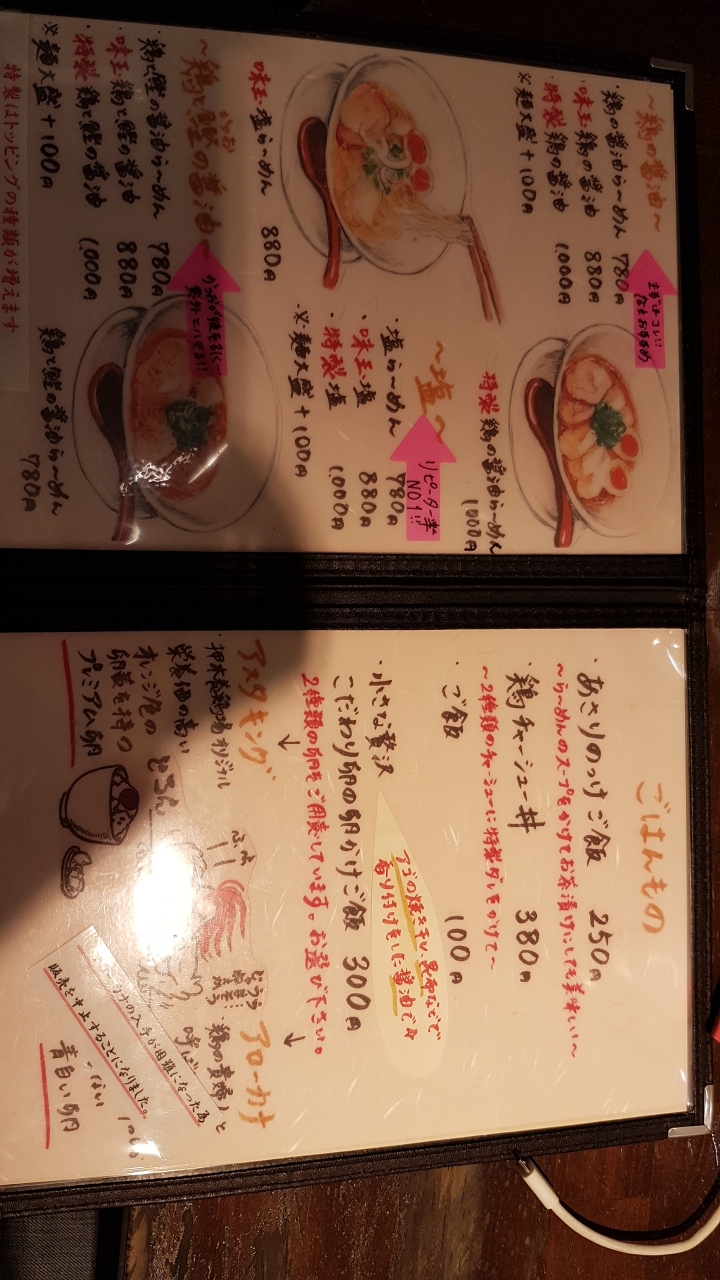 ～鶏の醤油～
・鶏の醤油らーめん 780円
・味玉 鶏の醤油 880円
・特製 鶏の醤油 1,000円
※麺大盛 +100円
まずはコレ!!
なおすすめ
特製 鶏の醤油らーめん
1000円
味玉 塩らーめん 880円
～塩～
・塩らーめん 780円
・味玉 塩 880円
・特製 塩 1,000円
※麺大盛 +100円
リピーター率
NO1!!
～鶏と鰹の醤油～
かつお
・鶏と鰹の醤油らーめん 780円
・味玉 鶏と鰹の醤油 880円
・特製 鶏と鰹の醤油 1,000円
※麺大盛 +100円
鶏と鰹の醤油らーめん
780円
特製はトッピングの種類が増えます
ごはんもの
・あさりのっけご飯 250円
～らーめんのスープをかけてお茶漬けにしても美味しい～
・鶏チャーシュー丼 380円
～2種類のチャーシューに特製ダレをかけて～
・ご飯 100円
アゴの焼き干し、昆布などで
香り付けをした醤油です
・小さな贅沢
こだわり卵の卵かけご飯 300円
2種類の卵をご用意しています。お選び下さい。
アスタキング
・押木養鶏場オリジナル
栄養価の高い
オレンジ色の
卵黄を持つ
プレミアム卵
とろん
アローカナ
・「鶏の貴婦人」と
呼ばれ
の入手が困難になった為
販売を中止することになりました。
青白い卵